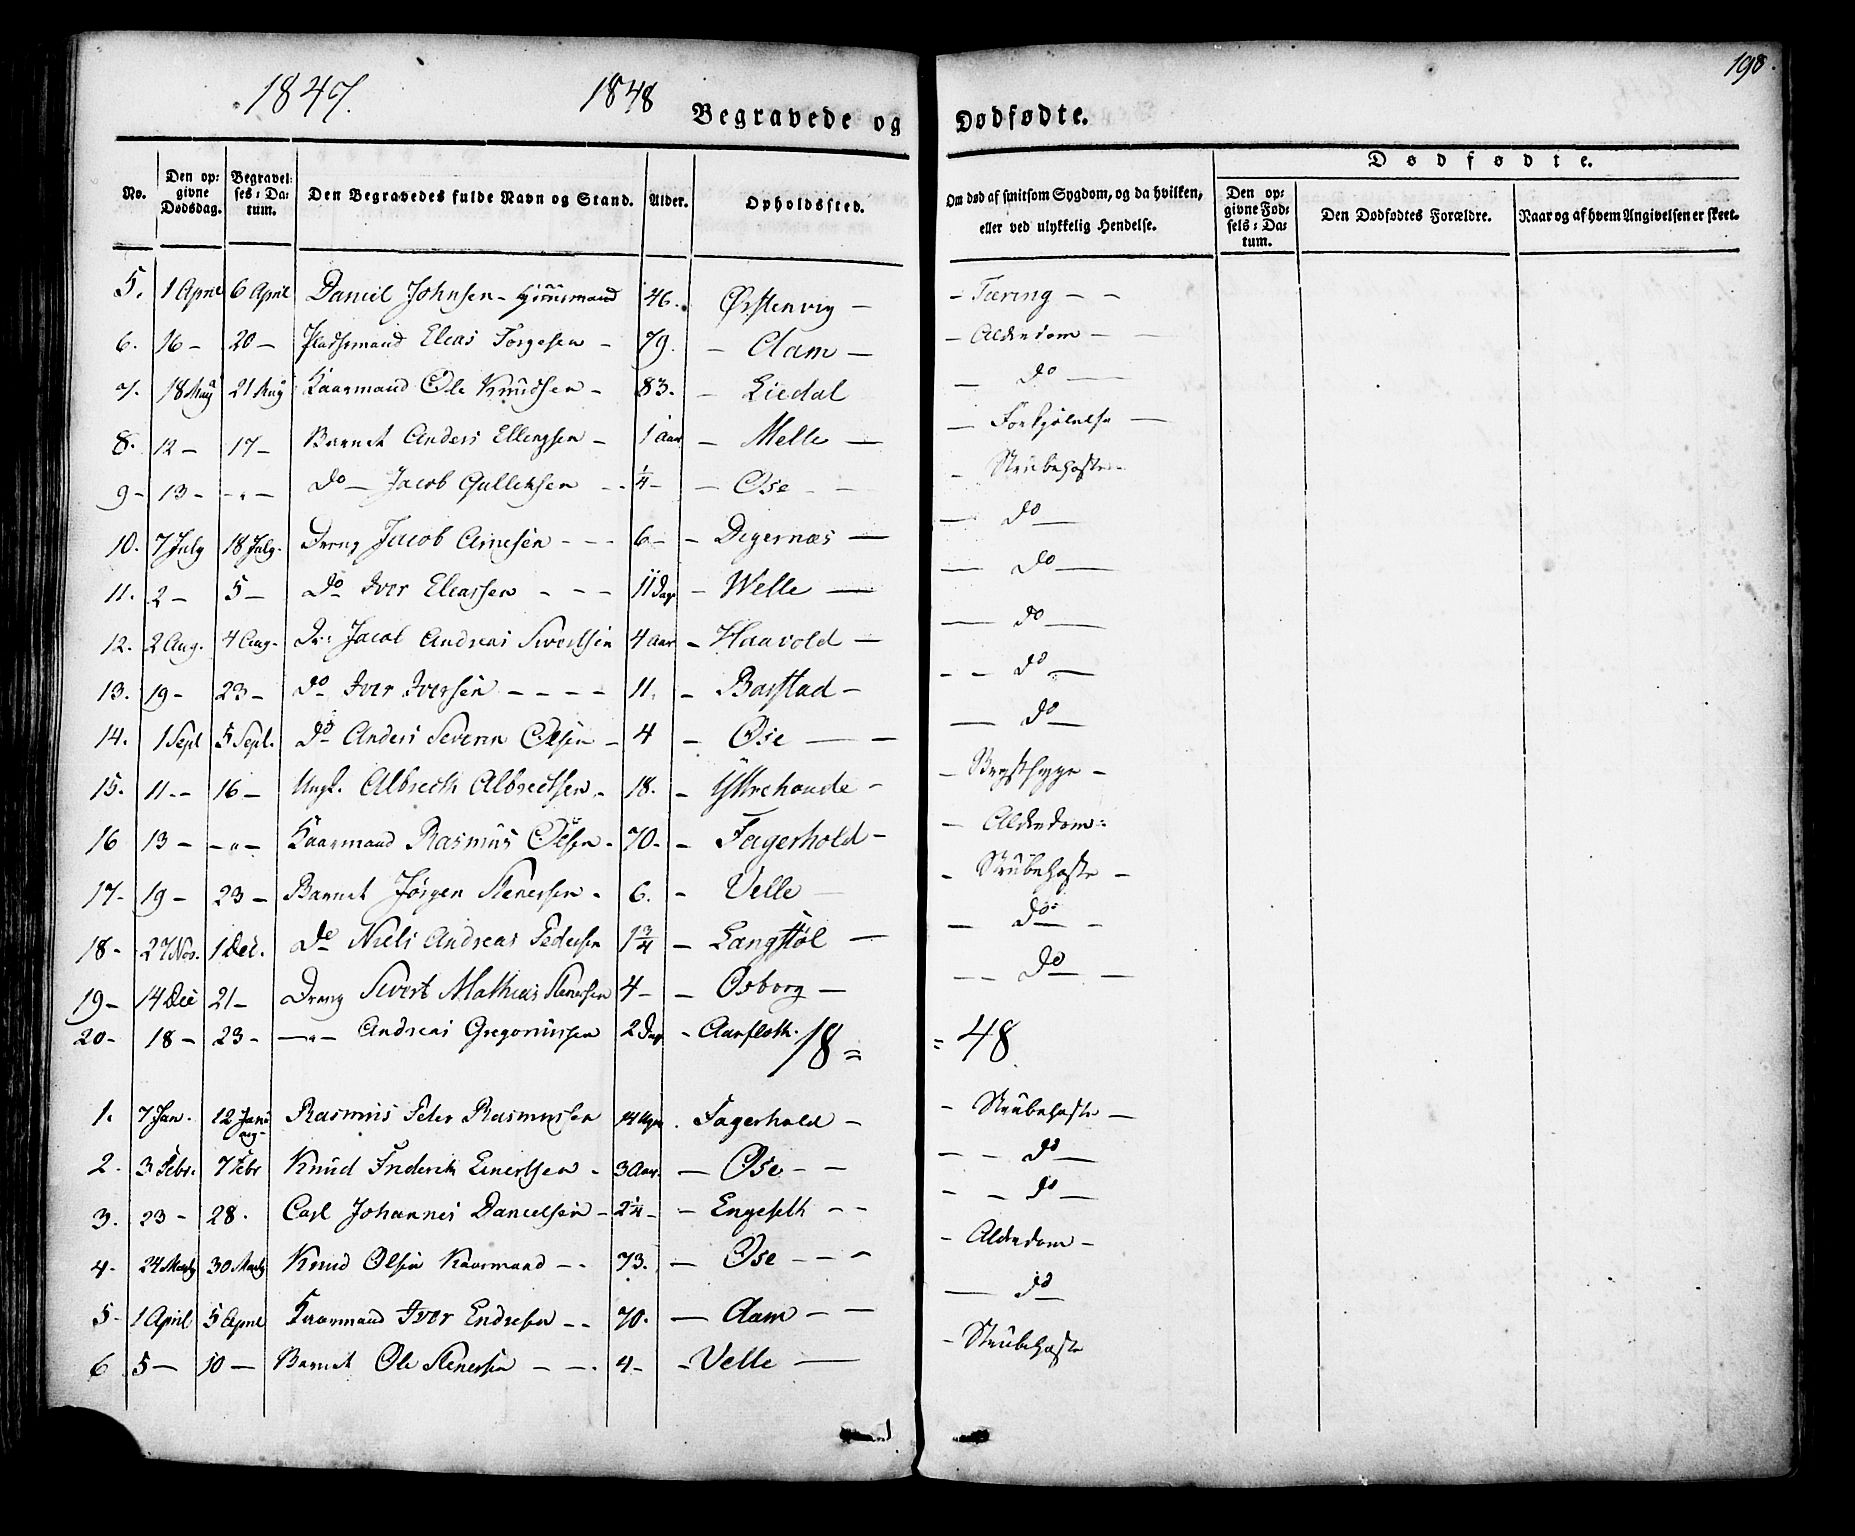 198.
1847. 1848 Begravede og Dødfødte.
No. Den opgivne Dødsdag. Begravelses-Datum. Den Begravedes fulde Navn og Stand. Alder. Opholdssted. Om død af smitsom Sygdom, og da hvilken, eller ved ulykkelig Hendelse. Dødfødte. Den opgivne Fødsels-Datum. Den Dødfødtes Forældre. Naar og af hvem Angivelsen er skeet.
5. 1 April 6 April Daniel Johnsen - 46. Ørstenvig - - Tæring - -
6. 16 - 20 - Pladsmand Elias Torgesen - 79. - Aam - - Alderdom -
7. 18 May 21 May Kaarmand Ole Knudsen - 83. - Liedal - do -
8. 12 - 17 - Barnet Anders Ellengsen - 1 Aar - Melle - - Forkjølelse -
9 - 13 - - " - do - Jacob Gulleksen - - 1/4 - - Øse - - - Strubehoste -
10. 7 July 18 July. Dreng Jacob Arnesen - - - 6 - - Digernæs - - do -
11. 2 - 5 - do Iver Eleassen - - - 11 Dage - Welle - - do -
12. 2 Aug. 4 Aug. Dr: Jacob Andreas Sivertsen 4 Aar - Haavold - - do -
13. 19 - 23 - do Iver Iversen - - - - 11. - Barstad - - - do -
14. 1 Sept 5 Sept. do Anders Severin Olsen - 4 - Øse - - - do -
15. 11 - - 16 - Ungk. Albrecth Albrectsen. 18. - Yttrehovde - - Brystsyge -
16 13 - - " - Kaarmand Rasmus Olsen - 70 - - Fagerhold - - Alderdom -
17 - 19 - 23 - Barnet Jørgen Stenersen - 6. - Velle - - Strubehoste -
18 - 27 Nov. 1 Dec. do Niels Andreas Pedersen 1 3/4 - Langstøl - - do -
19 - 14 Dec 21 - Dreng Sivert Mathias Stenersen 4 - - Osborg - - - do -
20 - 18 - 23 - - " - Andreas Gregoriussen 2 Dage - Aarfloth.
18 = = 48.
1. 7 Jan. 12 Rasmus Peter Rasmussen 14 Uger. Fagerhold - - Strubehoste -
2. 3 Febr. 7 Febr Knud Frederik Einertsen - 3 Aar. - Øse - - - - do -
3. 23 - 28. Carl Johannes Danielsen - 2 1/4 - - Engeseth - - - - do -
4 - 24 Marty 30 Marty Knud Olsen Kaarmand - - 73. - Øse - - - Alderdom -
5 - 1 April 5 April Kaarmand Iver Endresen - - 70. - Aam - - - do
6 5 - 10 - Barnet Ole Stenersen - - . 4 - - Velle - - Strubehoste